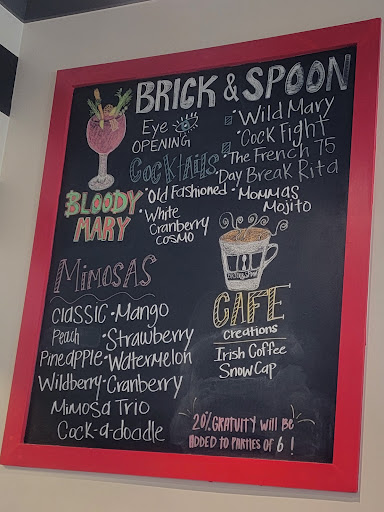 BRICK & SPOON
Eye OPENING
COCKTAILS
• Wild Mary
• Cock Fight
• The French 75
Day Break Rita
BLOODY MARY
• Old Fashioned • MOMMAS Mojito
• White Cranberry Cosmo
MIMOSAS
CLASSIC • Mango
Peach • Strawberry
Pineapple • Watermelon
Wildberry • Cranberry
Mimosa Trio
Cock-a-doodle
CAFE
Creations
Irish Coffee
Snow Cap
20% GRATUITY will BE
ADDED TO PARTIES OF 6!